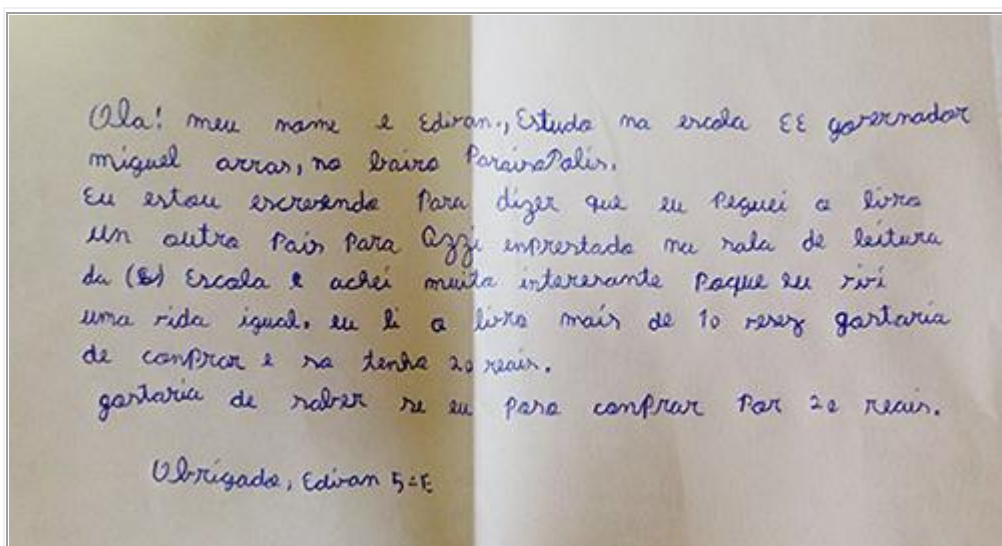 Ola! meu nome e Edivan., Estudo na escola EE governador
miguel arras, no bairo ParaisoPolis.
Eu estou escrevendo Para dizer que eu Peguei o livro
un outro Pais Para Azzi enprestado na sala de leitura
da Escola e achei muito interesante Poque eu vivi
uma vida igual. eu li o livro mais de 10 vesez gostaria
de conPrar e so tenho 20 reais.
gostaria de saber se eu poso conPrar Por 20 reais.
Obrigado, Edivan 5=E